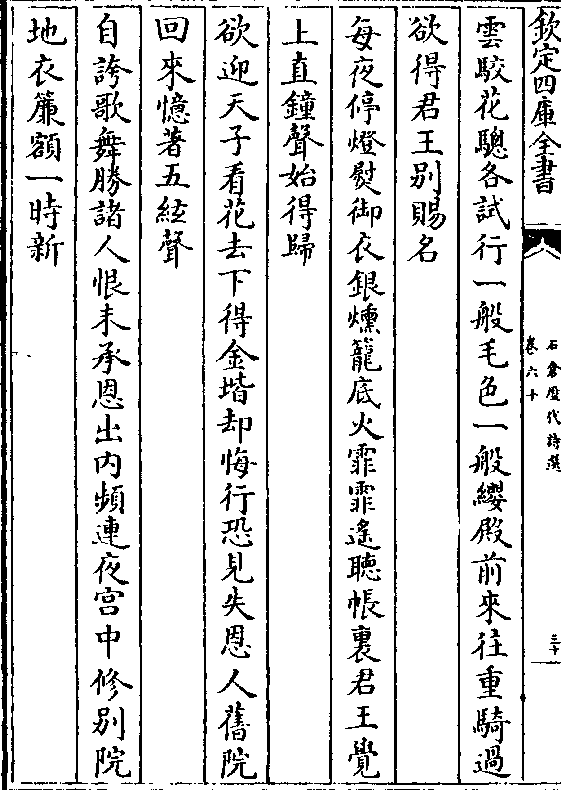 欽定四庫全書
石倉歷代詩選
卷六十
三十
雲駮花驄各試行一般毛色一般纓殿前來往重騎過
欲得君王別賜名
每夜停燈熨御衣銀燻籠底火霏霏遙聽帳裏君王覺
上直鐘聲始得歸
欲迎天子看花去下得金堦却悔行恐見失恩人舊院
回來憶著五絃聲
自誇歌舞勝諸人恨未承恩出內頻連夜宫中修別院
地衣簾額一時新